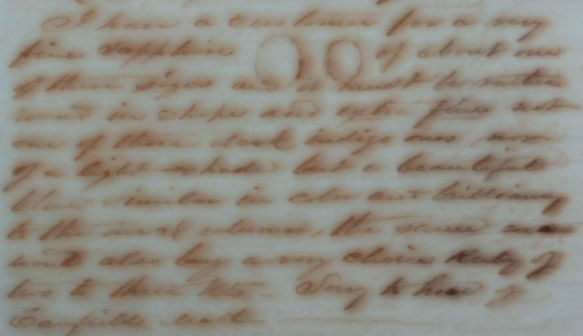 I have a customer for a very
fine sapphire of about one
of these sizes and it must be rather
round in shape and extra fine not
one of those dark indigo ones nor
of a light shade but a beautiful
blue similar in color and brilliancy
to the oval, the same man
would also buy a very choice Ruby of
two to three Kts - Sorry to hear of